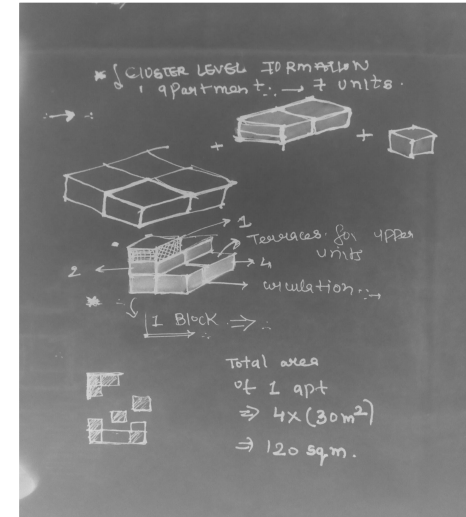 * { CLUSTER LEVEL FORMATION
1 apartment ∴ → 7 units.
∴ → ∴
+
+
1
Terraces for upper
units
2
4
circulation ∴ →
* ∴
1 Block ⇒ ∴
Total area
of 1 apt
⇒ 4x(30m²)
⇒ 120 sqm.